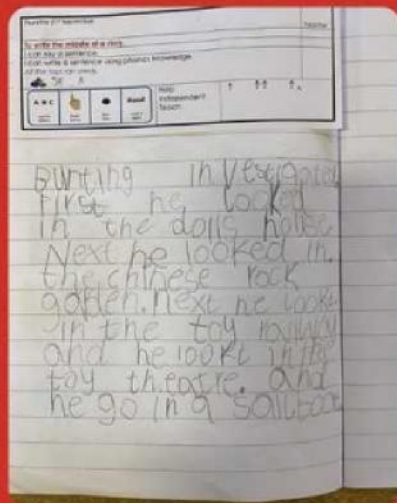 To write the middle of a story.
I can say a sentence.
I can write a sentence using phonics knowledge.
All the toys ran away.
A B C
Read
Help
Independent
Teach
Bunting investigated
First he looked
in the dolls house
Next he looked in.
the chinese rock
garden. next he lookt
in the toy railway
and he lookt in the
toy theatre. and
he go in a sailboat